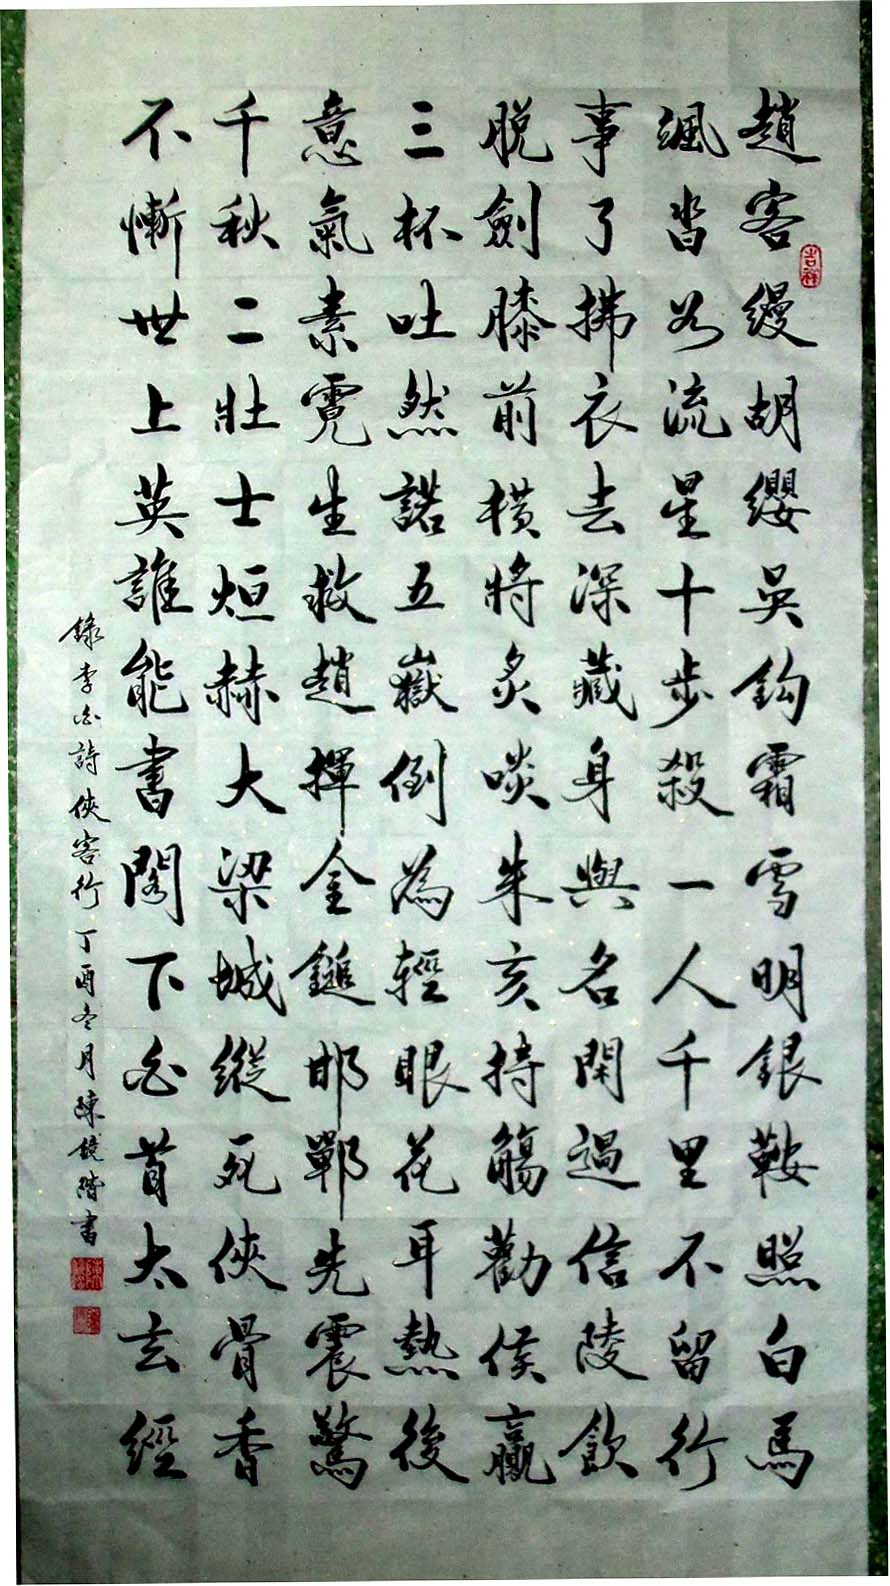 趙客縵胡纓吳鈎霜雪明銀鞍照白馬
颯沓如流星十步殺一人千里不留行
事了拂衣去深藏身與名閑過信陵飲
脫劍膝前橫將炙啖朱亥持觴勸侯嬴
三杯吐然諾五嶽倒為輕眼花耳熱後
意氣素霓生救趙揮金鎚邯鄲先震驚
千秋二壯士烜赫大梁城縱死俠骨香
不慚世上英誰能書閣下白首太玄經
錄李白詩俠客行丁酉冬月陳鏡階書
吉祥